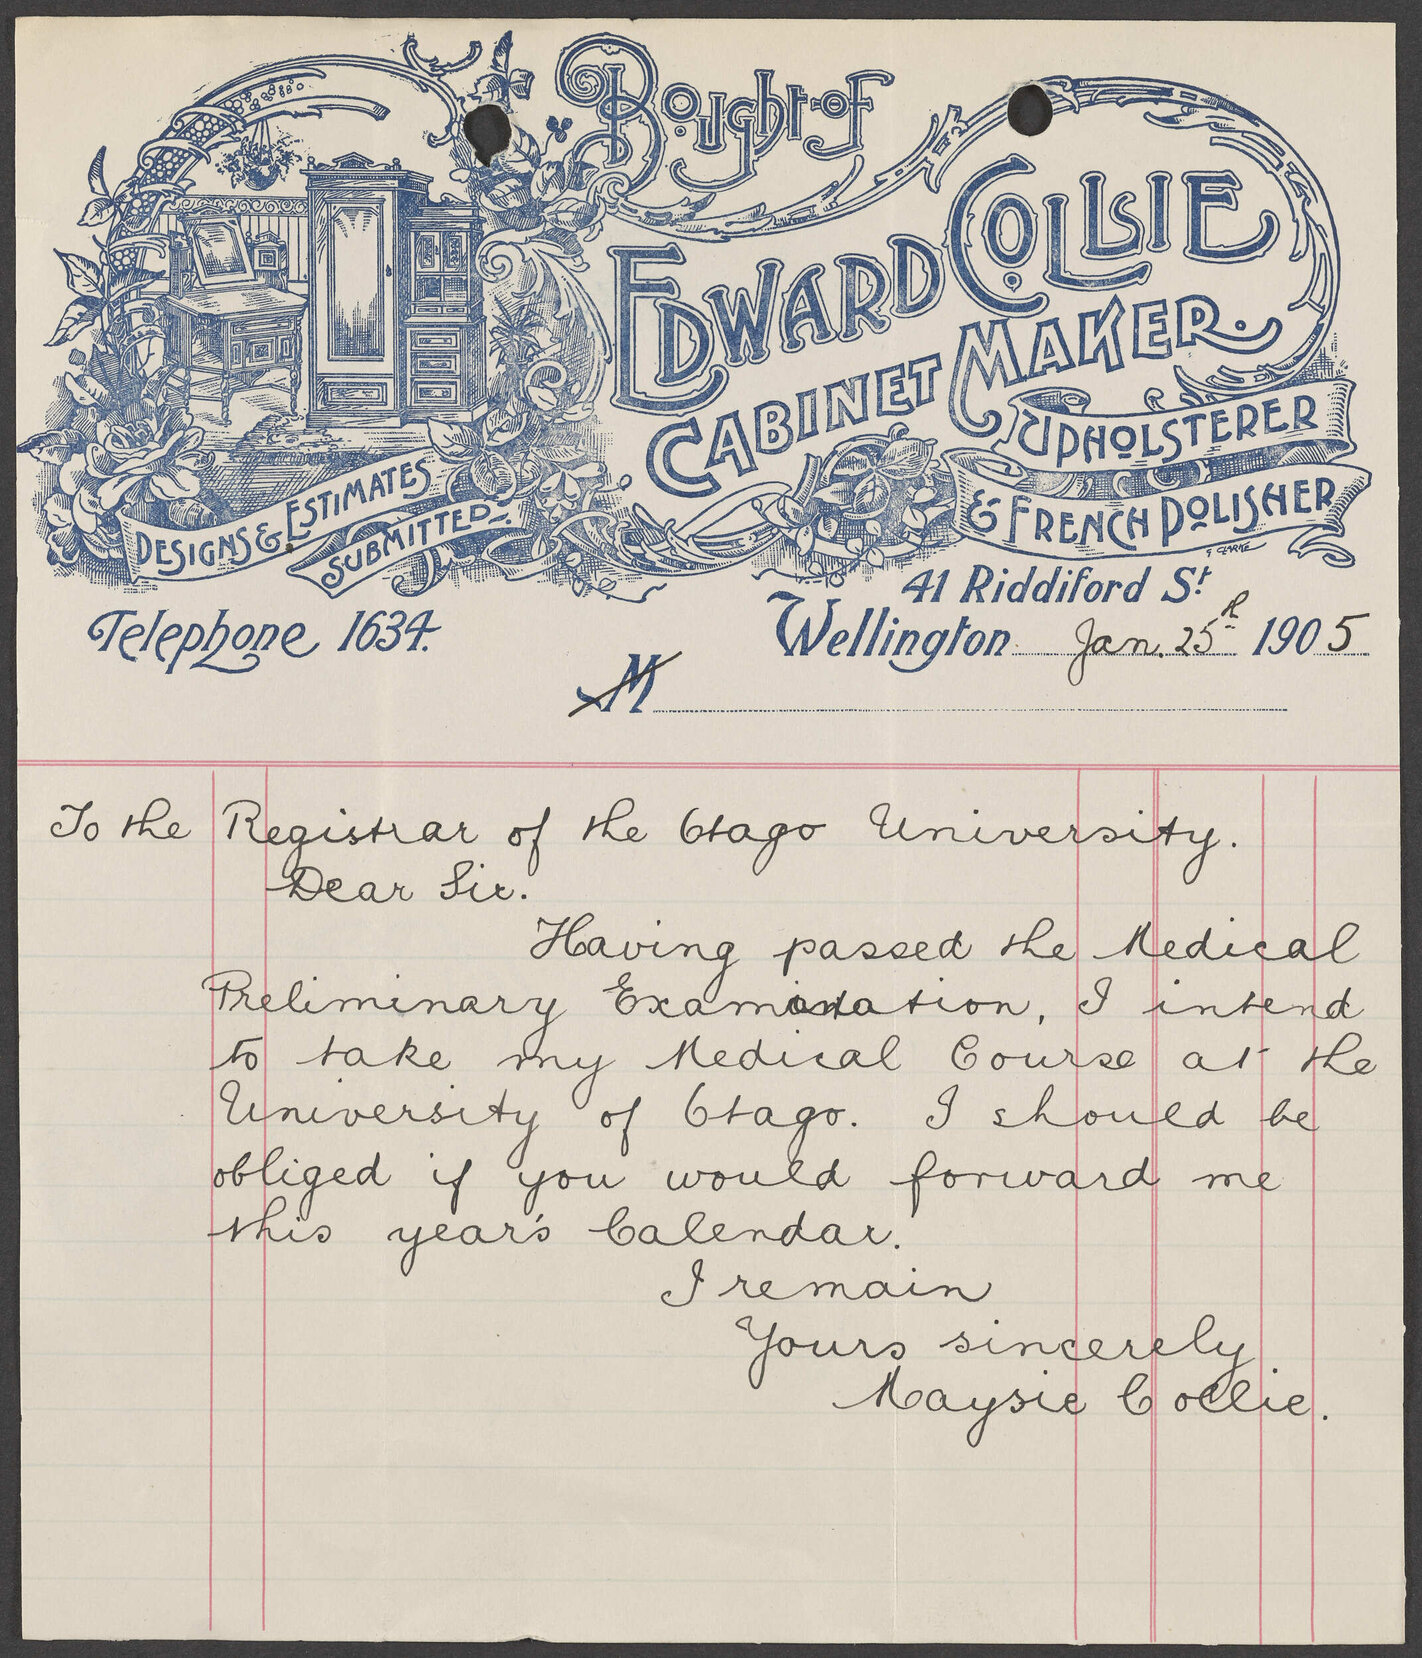 Bought of
EDWARD COLLIE
CABINET MAKER.
UPHOLSTERER
& FRENCH POLISHER
DESIGNS & ESTIMATES
SUBMITTED
41 Riddiford St
Telephone 1634.
Wellington Jan. 25th 1905
M
To the Registrar of the Otago University.
Dear Sir.
Having passed the Medical
Preliminary Examination, I intend
to take my Medical Course at the
University of Otago. I should be
obliged if you would forward me
this year's Calendar.
I remain
Yours sincerely
Maysie Collie.